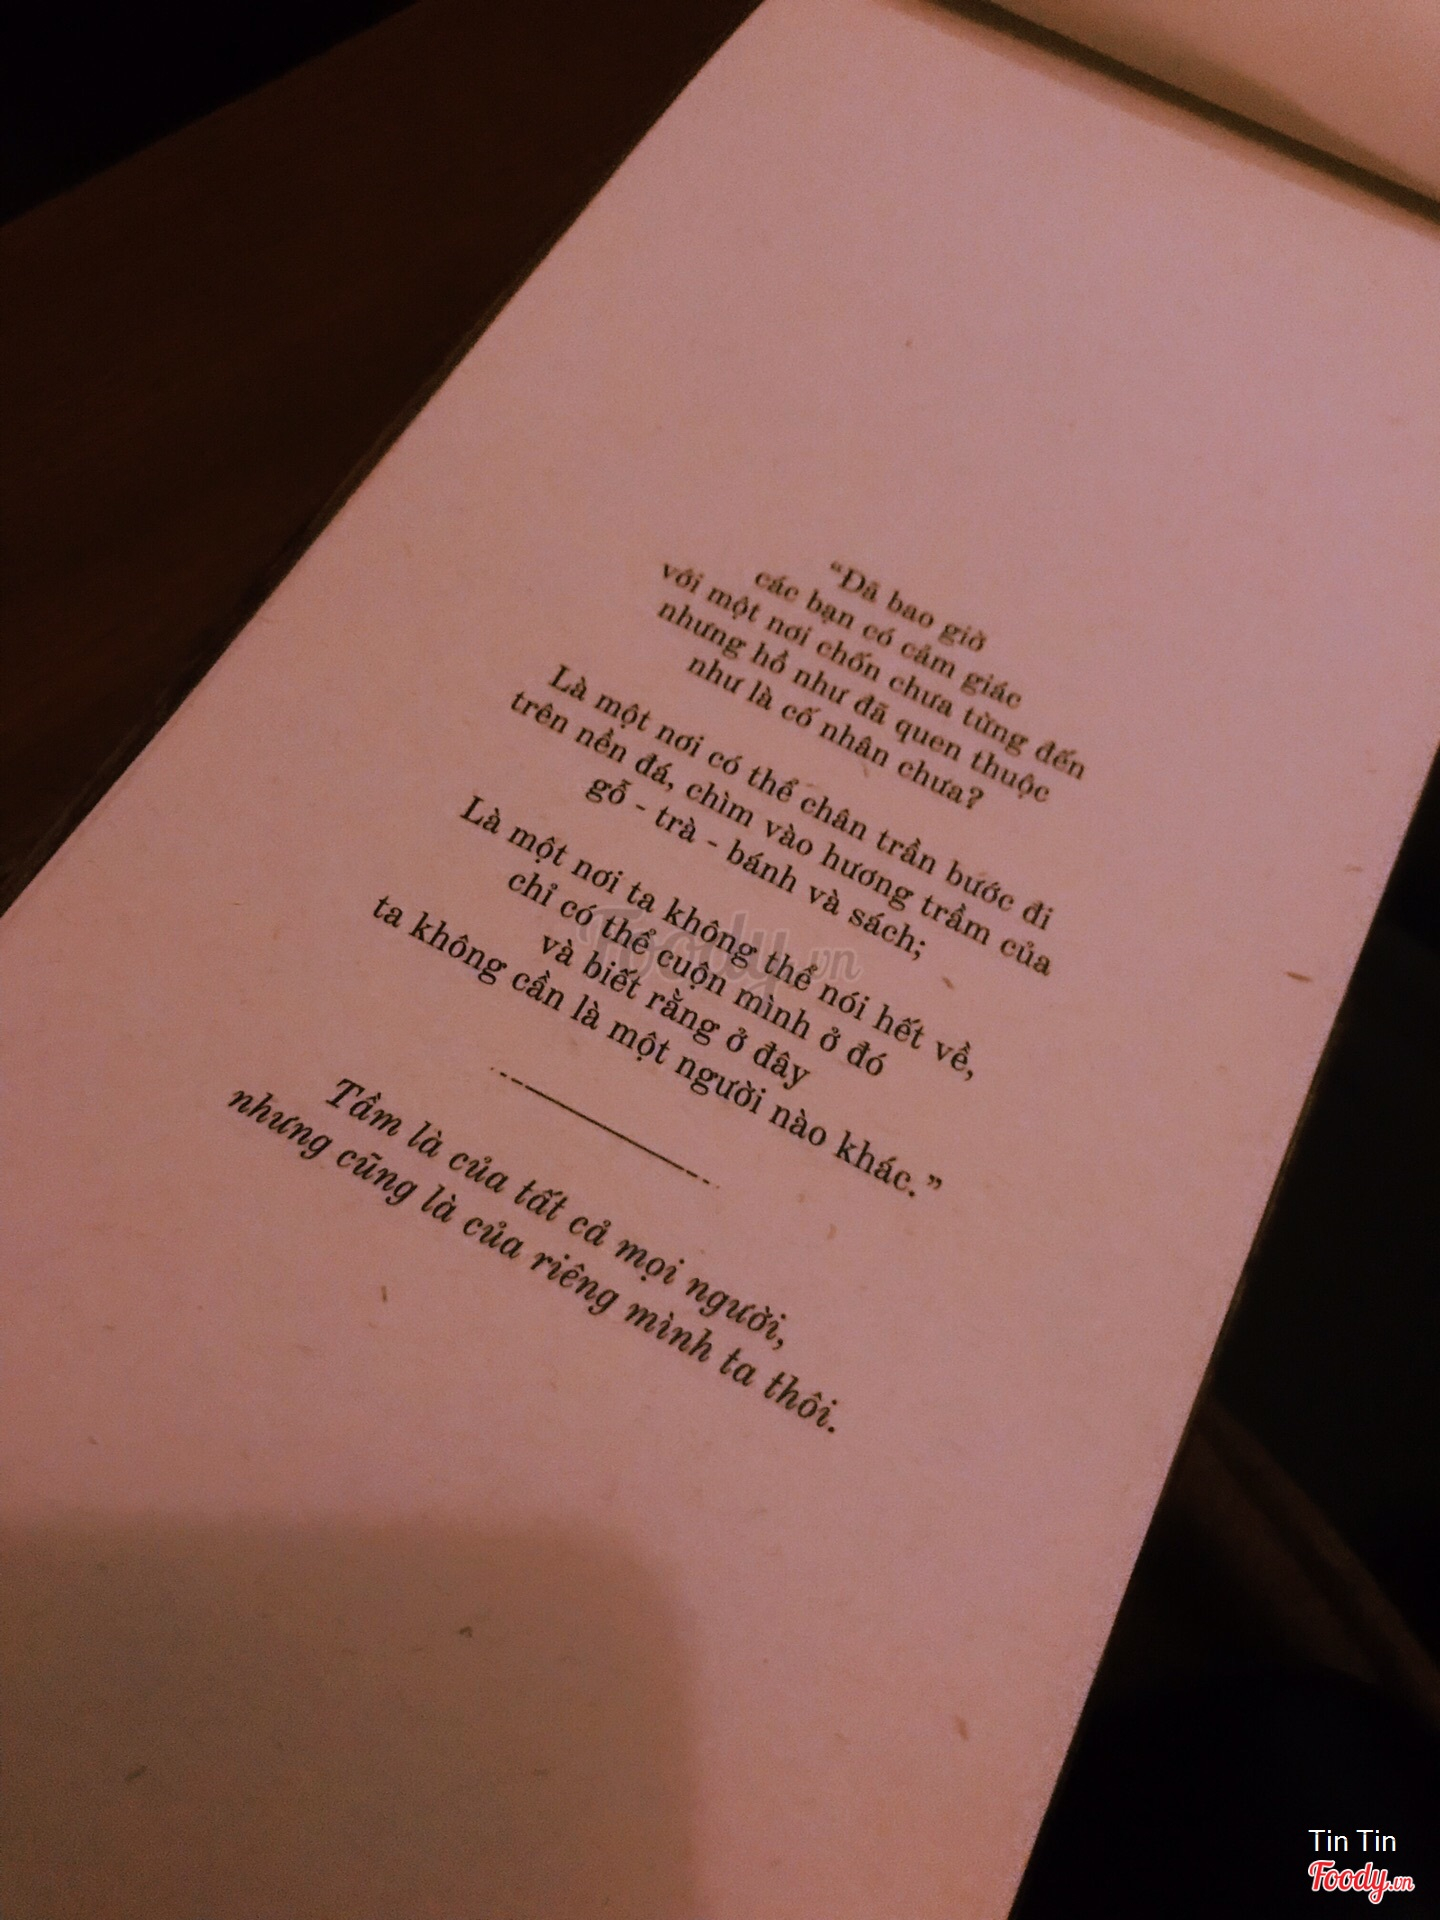 “Đã bao giờ
các bạn có cảm giác
với một nơi chốn chưa từng đến
nhưng hồ như đã quen thuộc
như là cố nhân chưa?
Là một nơi có thể chân trần bước đi
trên nền đá, chìm vào hương trầm của
gỗ - trà - bánh và sách;
Là một nơi ta không thể nói hết về,
chỉ có thể cuộn mình ở đó
và biết rằng ở đây
ta không cần là một người nào khác.”
Tầm là của tất cả mọi người,
nhưng cũng là của riêng mình ta thôi.
Foody.vn
Tin Tin
Foody.vn